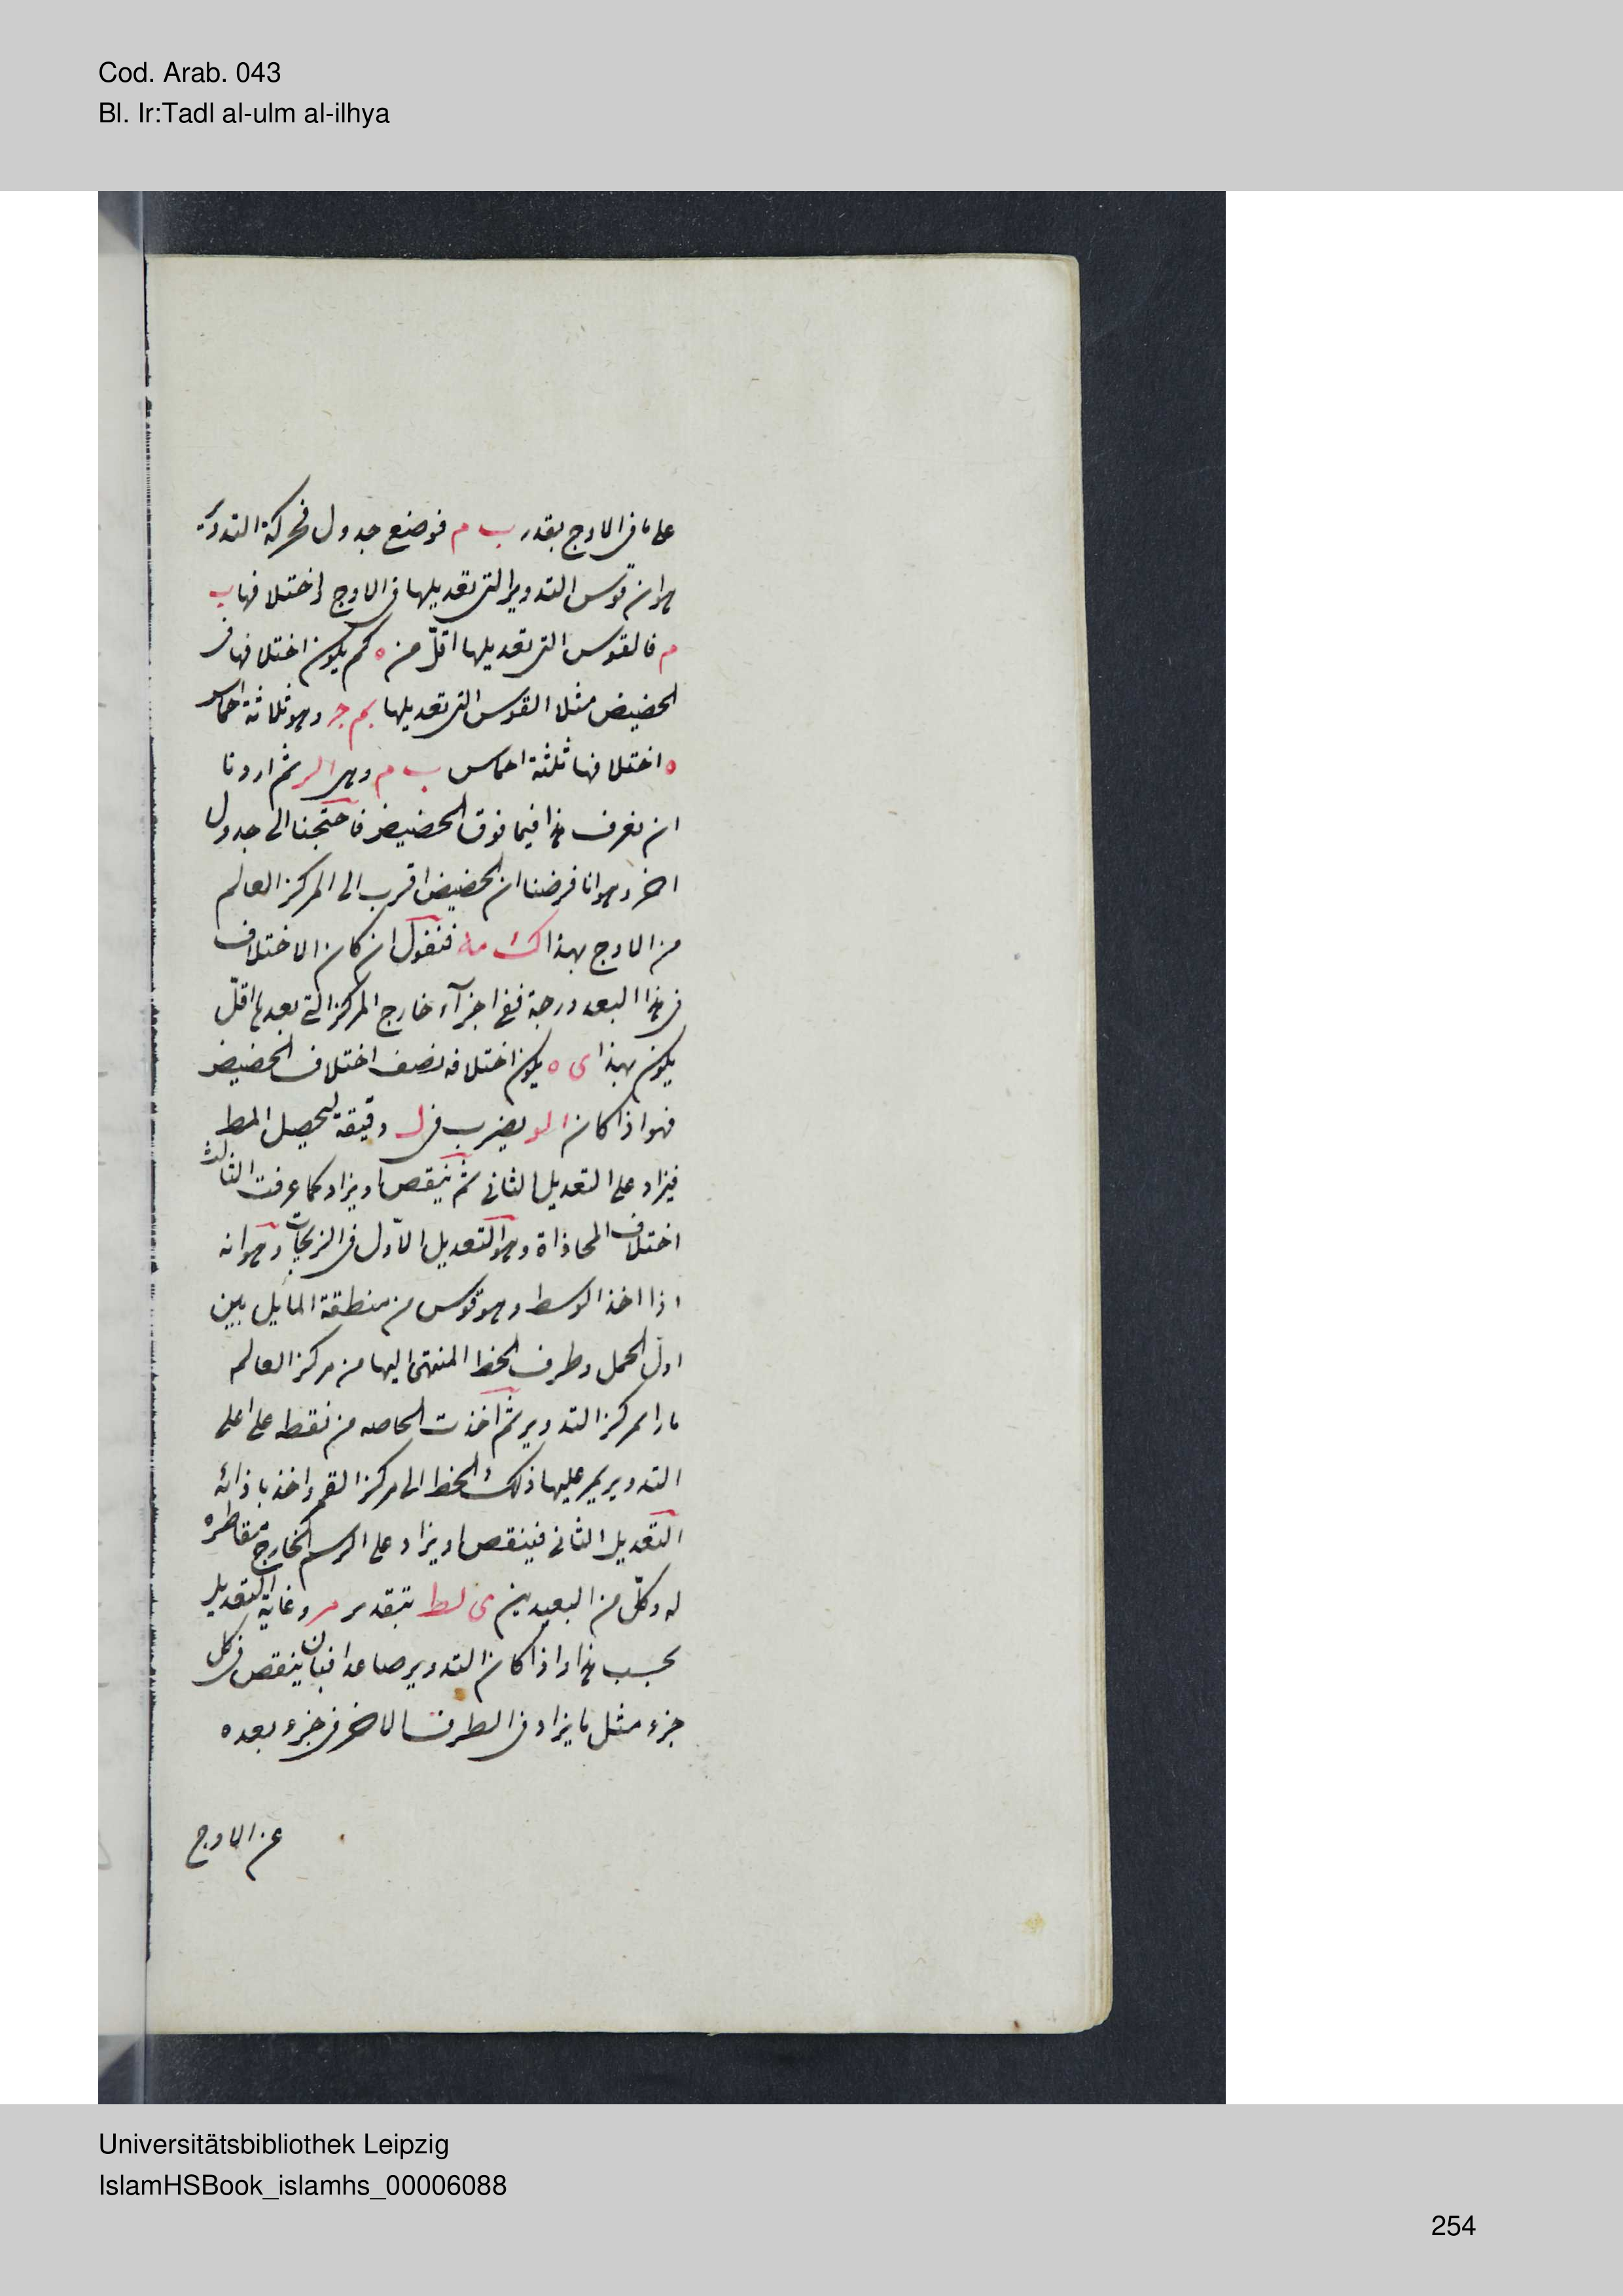 Cod. Arab. 043
Bl. Ir:Tadl al-ulm al-ilhya
على ما فى الاوج بقدر ب م فوضع جدول
هو ان قوس التدوير التى تعديلها فى الاوج اختلافها ب
م فالقوس التى تعديلها اقلّ من ه كم يكون اختلافها فى
الحضيض مثلا القوس التى تعديلها جـ وهو ثلاثة اخماس
ه اختلافها ثلثة اخماس ب م وهى ا لر ثم اردنا
ان نعرف هذا فيما فوق الحضيض فاحتجنا الى جدول
اخر وهو انا فرضنا ان الحضيض اقرب الى المركز العالم
من الاوج بهذا ك مه فنقول ان كان الاختلاف
فى هذا البعد درجة ففى اجزآء خارج المركز التى بعدها اقلّ
يكون بهذا ى ه يكون اختلافه نصف اختلاف الحضيض
فهو اذا كان ا لو يضرب فى ل دقيقة ليحصل المط
فيزاد على التعديل الثانى ثم ينقص او يزاد كما عرفت الثالث
اختلاف المحاذاة وهو التعديل الاوّل فى الزيجات وهو انه
اذا اخذ الوسط وهو قوس من منطقة المايل بين
اول الحمل وطرف الخط المنتهى اليها من مركز العالم
مارا بمركز التدوير ثم اخذت الخاصه من نقطه على اعلى
التدوير يمر عليها ذلك الخط الى مركز القمر واخذ باذائه
التعديل الثانى فينقص او يزاد على الرسم الخارج
له وكلّ من البعدين ى لط وغاية التعديل
بحسب هذا واذا كان التدوير صاعدا فبان ينقص فى كل
جزء مثل ما يزاد فى الطرف الاخر فى جزء بعده
عن الاوج
Universitätsbibliothek Leipzig
IslamHSBook_islamhs_00006088
254